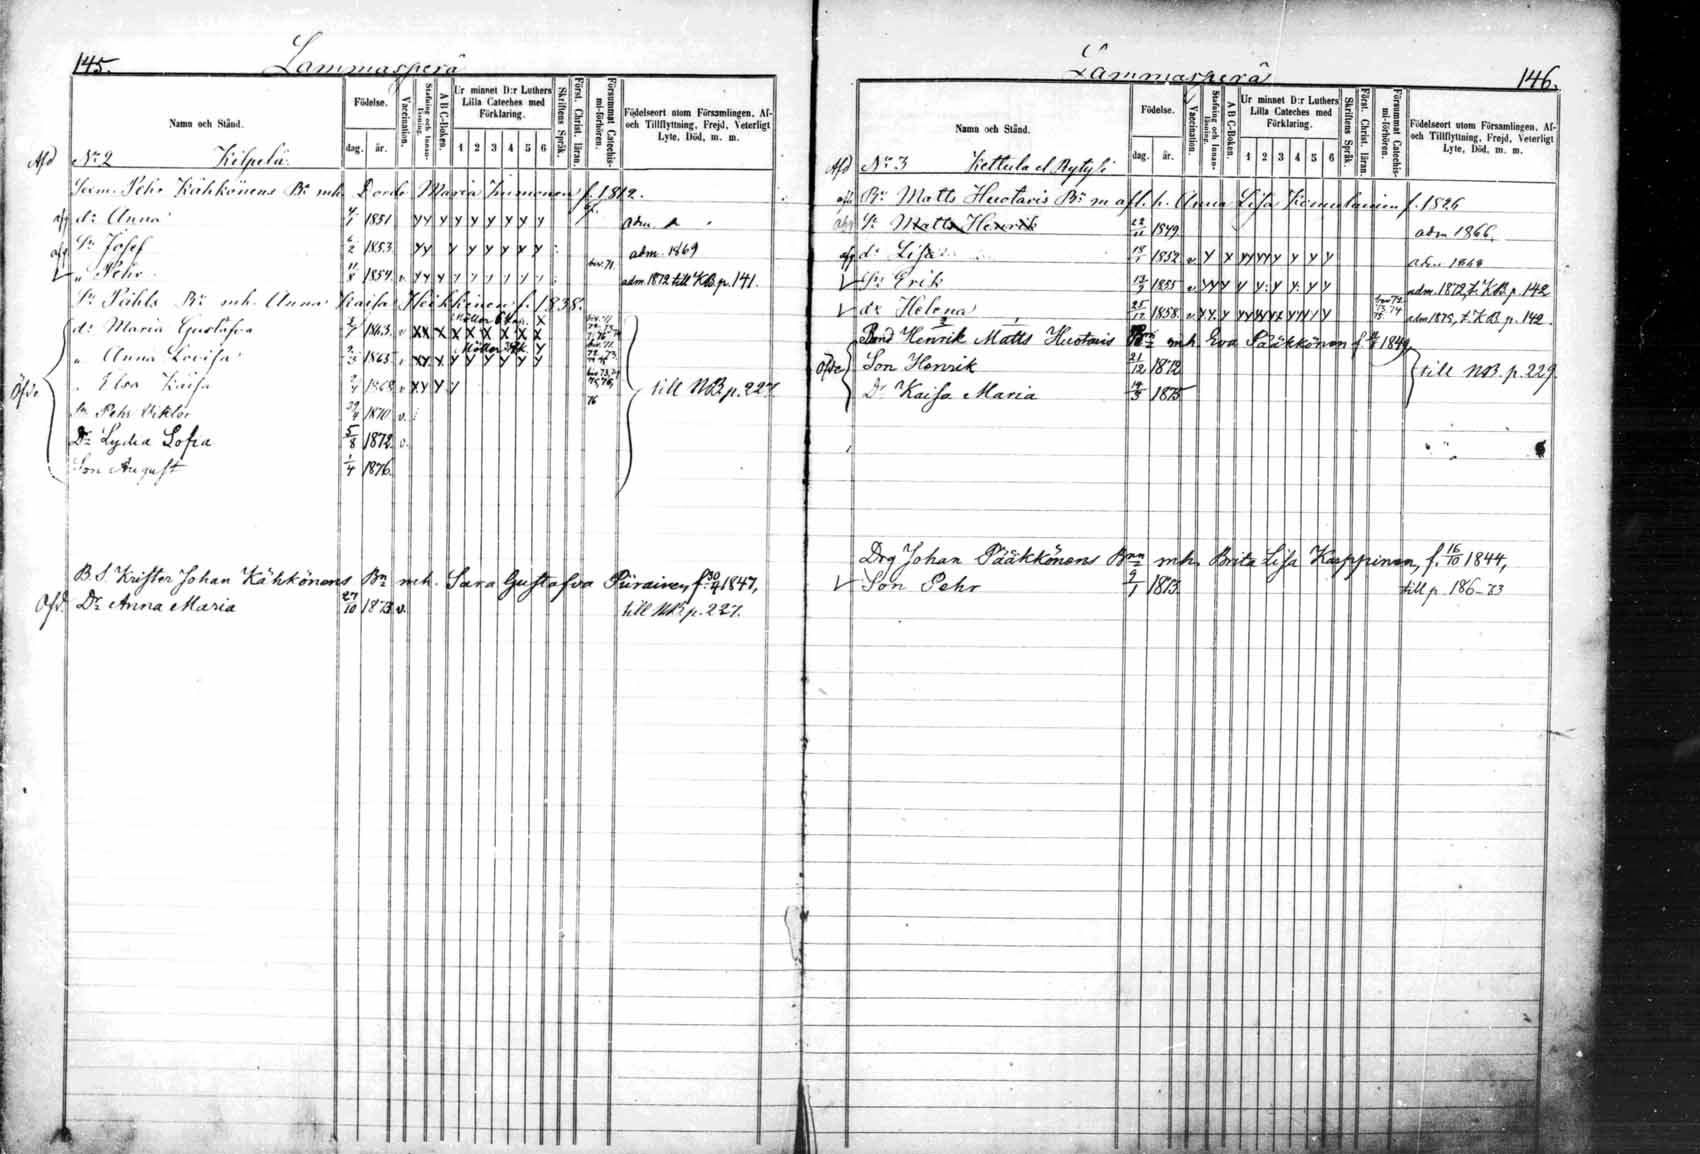 145.
Lammasperä
Namn och Stånd.
Födelse.
dag. år.
Vaccination.
Stafning och Innanläsning.
A B C-Boken.
Ur minnet D:r Luthers Lilla Cateches med Förklaring.
1 2 3 4 5 6
Skriftens Språk.
Först. Christ. läran.
Försummat Catechismi-förhören.
Födelseort utom Församlingen, Af- och Tillflyttning, Frejd, Veterligt Lyte, Död, m. m.
Afd No 2 Kilpelä.
Pehr Kähkönens Bn mh. Maria f. 1812.
dr Anna 1851
Sn Josef 1853. adm. 1869
" Pehr 1854. v adm. 1872 till KB. p. 141.
Sn Påhls Bn mh. Anna Kaisa Heikkinen f. 1838.
dr Maria Gustafva 1863. v
" Anna Lovisa 1865
" Elsa Kaisa 1868 v till NB. p. 227.
Sn Pehr Viktor 1870 v.
Dr Lydia Sofia 5/8 1872. v.
Son August 1/4 1876.
B.S. Krister Johan Kähkönens Bn mh. Sara Gustafva Piirainen, f. 1847,
Dr Anna Maria 27/10 1873 v. till NB. p. 227.
146.
Lammasperä
Namn och Stånd.
Födelse.
dag. år.
Vaccination.
Stafning och Innanläsning.
A B C-Boken.
Ur minnet D:r Luthers Lilla Cateches med Förklaring.
1 2 3 4 5 6
Skriftens Språk.
Först. Christ. läran.
Försummat Catechismi-förhören.
Födelseort utom Församlingen, Af- och Tillflyttning, Frejd, Veterligt Lyte, Död, m. m.
Afd No 3 Kettula el. Rytyli
Matts Huotaris Bn m afl. h. Anna Lisa Komulainen f. 1826
Sn Matts Henrik 1849. adm 1866.
dr Lisa 1852 v adm. 1868
Sn Erik 1855 v adm. 1872, t. KB. p. 142
dr Helena 25/12 1858. v adm 1875, t. KB. p. 142.
Bond Henrik Matts Huotaris Bn mh. Eva Pääkkönen f. 1849
Son Henrik 21/12 1872 till NB. p. 229.
Dr Kaisa Maria 1875
Drg Johan Pääkkönens Bnn mh. Brita Lisa Karppinen, f. 16/10 1844,
Son Pehr 1873. till p. 186-73